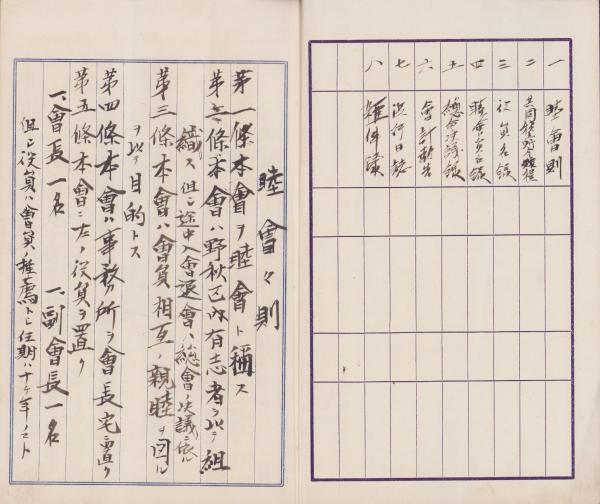 一 睦會則
二 共同
三 役員名錄
四 睦會員名錄
五 總會決議錄
六 會計報告
七 流行日誌
八 雜件議
睦會々則
第一條本會ヲ睦會ト稱ス
第二條本會ハ野秋區內有志者ヲ以テ組
織ス 但シ途中入會退會ハ總會ノ決議ニ依ル
第三條本會ハ會員相互ノ親睦ヲ図ル
ヲ以テ目的トス
第四條本會ハ事務所ヲ會長宅ニ置ク
第五條本會ニ左ノ役員ヲ置ク
一、會長一名 一、副會長一名
但シ役員ハ會員ノ推薦トシ任期ハ十ケ年ノコト